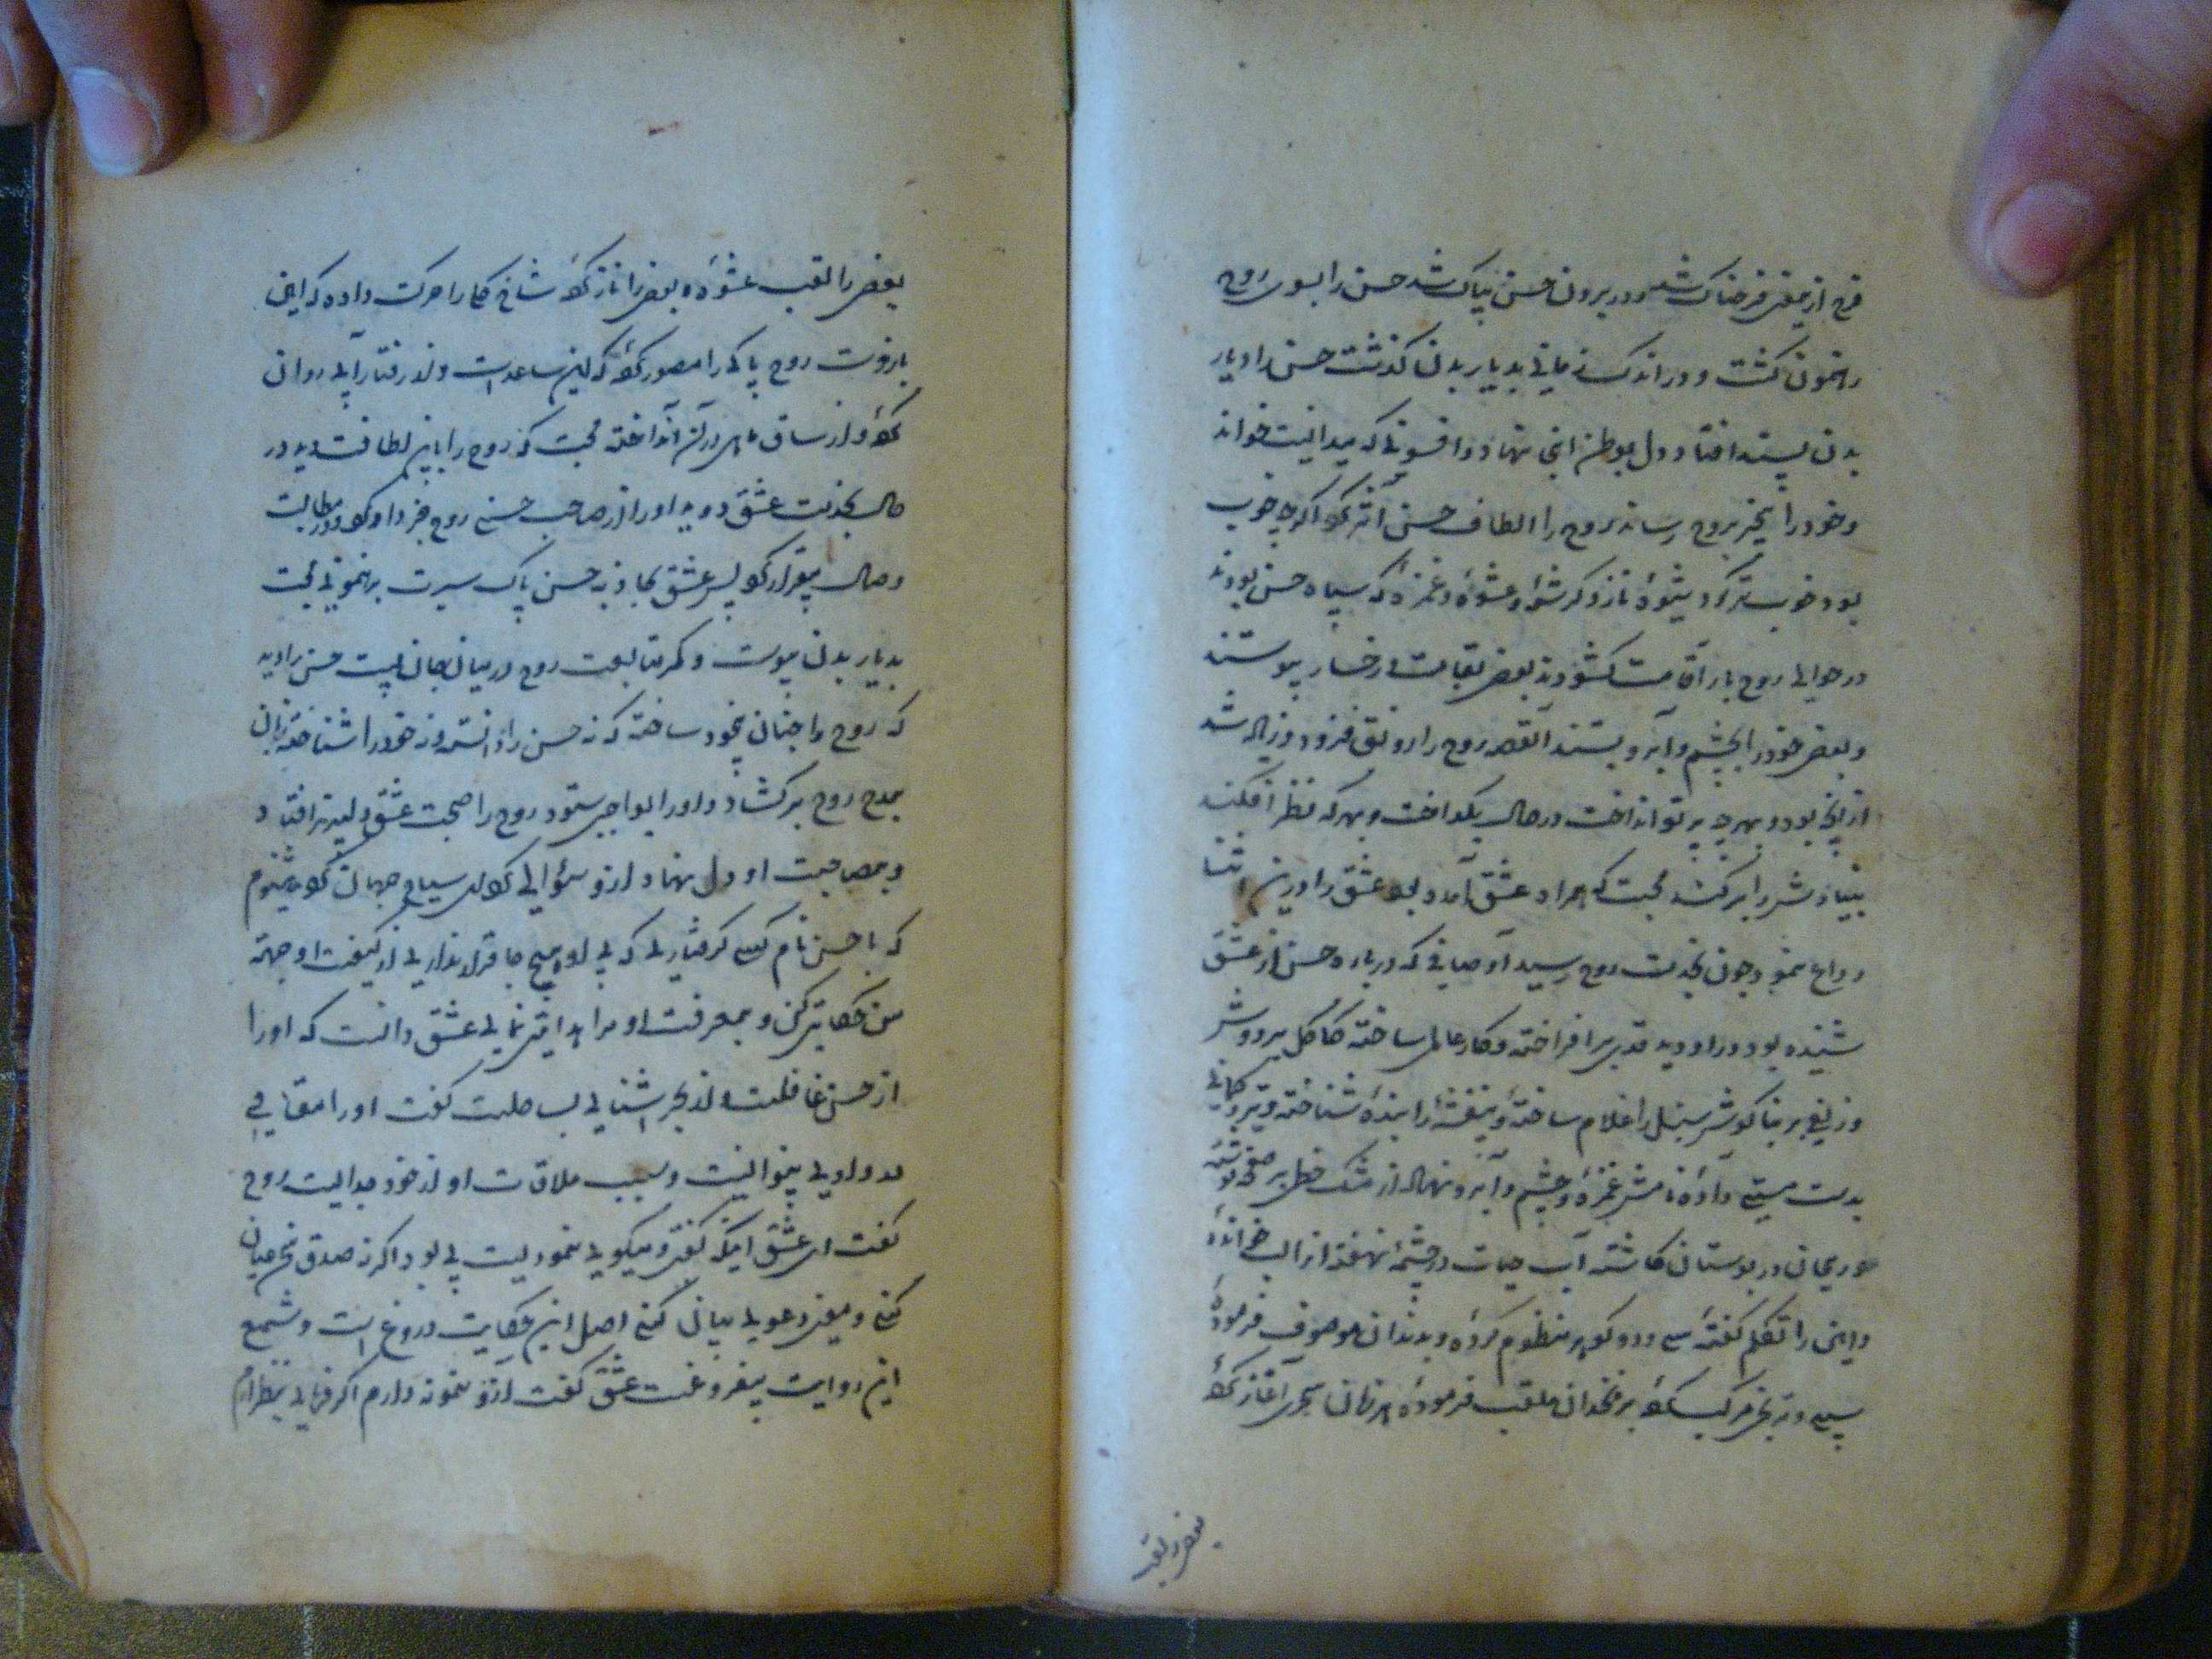 فرح ازیمعنی فرحناک شد و در بیرون حسن بیباک شد حسن را بسوی روح
رهنمون گشت و در اندک زمانی بدیار بدن گذشت حسن را دیار
بدن پسند افتاد و دل بوطن اینجا نهاد و افسونی که میدانست خواند
و خود را بروح رساند روح را الطاف حسن اگرچه خوب
بود خوب تر کرد شیوهٔ ناز و کرشمهٔ و عشوهٔ و غمزهٔ که سپاه حسن بودند
در حوالی روح بار اقامت گشودند بعضی بقامت و رخسار پیوستند
و بعضی خود را بچشم و ابرو بستند القصه روح را رونق فزود و ژاله شد
از یخ بود و بهر چه پرتو انداخت در حال بگداخت و بهر که نظر افکند
بنیادش را برکند محبت که همراه عشق آمده بود عشق را درین اثنا
وداع نمود چون بخدمت روح رسید اوصافی که درباره حسن از عشق
شنیده بود در او دید قدی برافراخته و کار عالمی ساخته کاکل بر دوش
و زلفی بر بناگوش سنبل را غلام ساخته و بنفشه را بنده شناخته و تیر و کمانی
بدست مستی داده نامش غمزه و چشم و ابرو نهاده از مشک خطی بر صفحه نوشته
ریحان در بوستان کاشته آب حیات در چشمه نهفته از لب خوانده
و این را تکلم گفته سی و دو گوهر منظوم کرده و بدندان موصوف فرموده
سیب و ترنجی مرکب کرده بر نخدان ملقب فرموده هر زمان سحری آغاز کرده
بعضی را لقب
بعضی را لقب عشوه و بعضی را ناز کرده شاخ گل را حرکت داده که این
بازوست روح پاک را مصور کرده که این ساعد است و از رفتار آبی روان
کرده و از ساق ماهی در آن انداخته محبت که روح را باین لطافت دید در
حال بخدمت عشق دوید او را از صاحب حسنی روح خبر داد و در مطالبت
وصال بیقرار کرد پس عشق بجاذبه حسن پاک سیرت برهنمونی محبت
بدیار بدن پیوست و کمر متابعت روح در میان جان بست حسن را دید
که روح را چنان بیخود ساخته که نه حسن را دانسته و نه خود را شناخته زبان
بمدح روح برکشاد و او را بواجبی ستود روح را صحبت عشق دلپذیر افتاد
و بمصاحبت او دل نهاد و ازو سؤالی کرد که ای سیاح جهان گرد میشنوم
که با حسن نام کسی گرفتاری که بی او هیچ جا قرار نداری از کیفیت او جهة
من حکایتی کن و بمعرفت او مرا هدایتی نمای عشق دانست که او را
از حسن غافلست و از بحر آشنایی بساحلست گفت او را مقامی
مداوای بینوائیست و بسبب ملاقات او از خود جدائیست روح
گفت ای عشق اینکه گفتی و میگویی نمودیست بی بود اگر نه صدق سخن عیان
کنی و معنی دعوی بیان کنی اصل این حکایت دروغ است و شمع
این روایت بیفروغست عشق گفت ازو نمونه دارم اگر فرمایی بنظر آرم